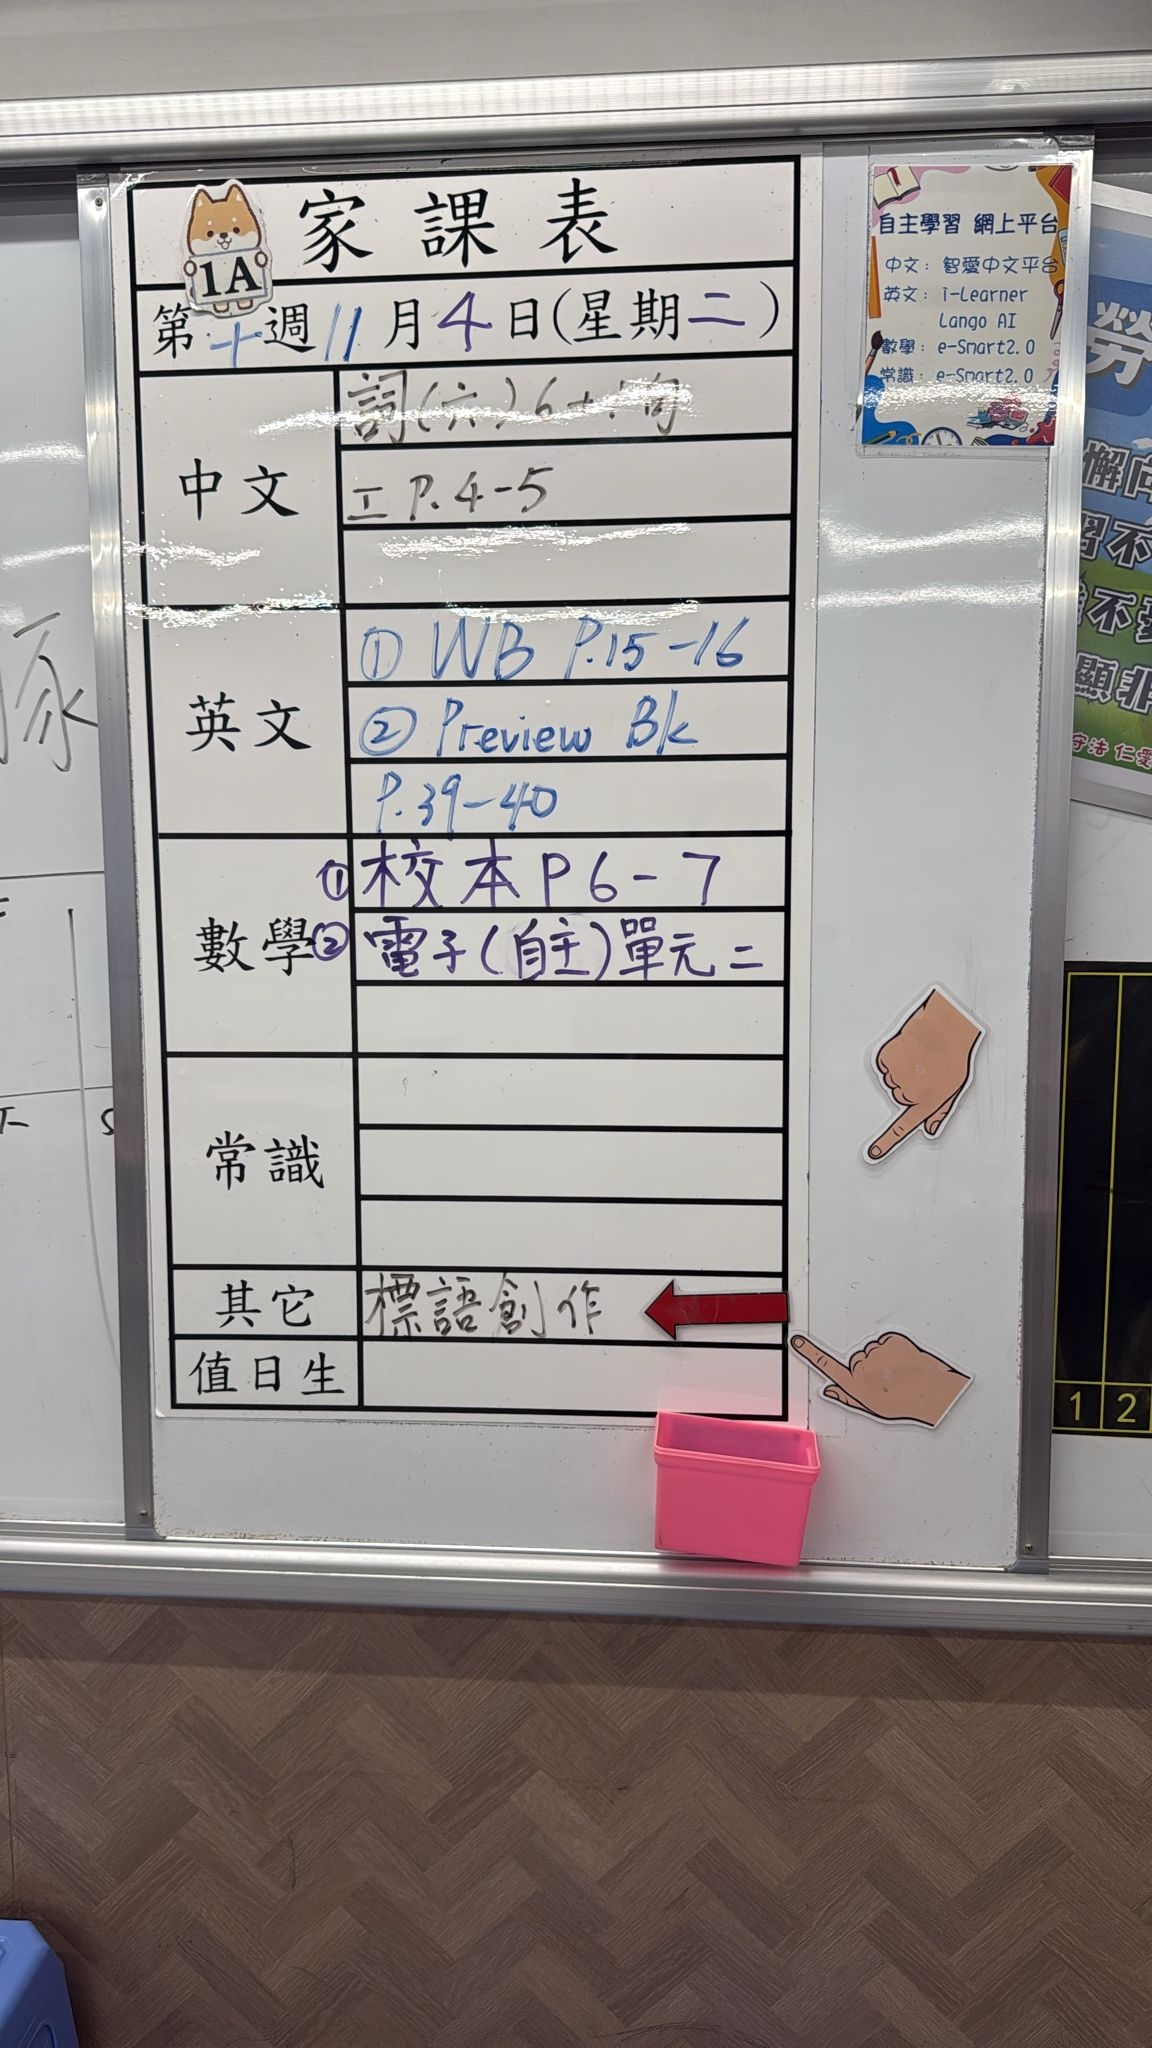 家課表
1A
第十週11月4日(星期二)
中文
詞(六)6+1句
工P.4-5
英文
① WB P.15-16
② Preview Bk
P.39-40
數學
① 校本P6-7
② 電子(自主)單元二
常識
其它
標語創作
值日生
自主學習 網上平台
中文：智愛中文平台
英文：i-Learner
Lango AI
數學：e-Smart2.0
常識：e-Smart2.0
勞
懈向
習不
不
顯非
守法 仁愛
豕
1 2